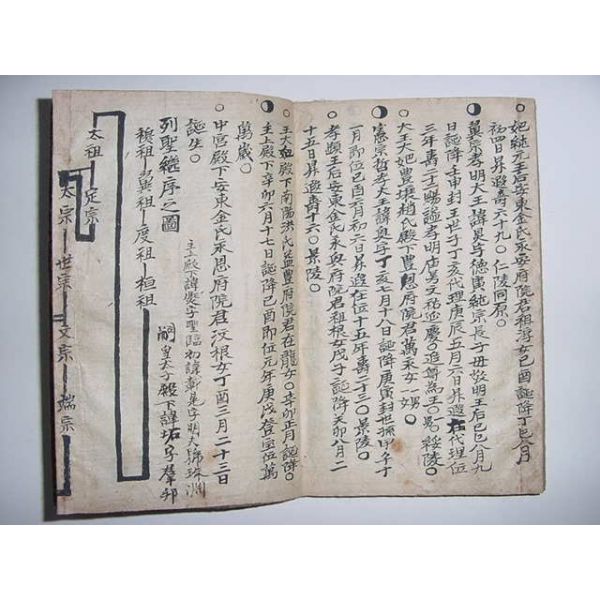 妃純元王后安東金氏永安府院君祖淳女己酉誕降丁巳八月
初四日昇遐壽六十九〇仁陵同原〇
翼宗孝明大王諱旲字德寅純宗長子母敬明王后己巳八月九
日誕降壬申封王世子丁亥代理庚辰五月六日昇遐在代理位
三年壽二十二賜諡孝明廟号文祜延慶〇追尊為王〇号綏陵〇
大王大妃豊壤趙氏殿下豊恩府院君萬永女一男〇
憲宗哲孝大王諱奐字丁亥七月十八日誕降庚寅封世孫甲午十
一月即位己酉六月初六日昇遐在位十五年壽二十三〇景陵〇
孝顯王后安東金氏永興府院君祖根女戊子誕降癸卯八月二
十五日昇遐壽十六〇景陵〇
王大妃殿下南陽洪氏益豊府院君在龍女〇辛卯正月誕降〇
主上殿下辛卯六月十七日誕降己酉即位元年庚戌登宝位萬
萬歲〇
中宮殿下安東金氏永恩府院君汶根女丁酉三月二十三日
誕生〇
主上殿下諱 字聖臨初諱載晃字明夫号珠淵
列聖継序之圖
嗣皇太子殿下諱坧字羣邦
穆祖 翼祖 度祖 桓祖
太祖 定宗
太宗 世宗 文宗 端宗